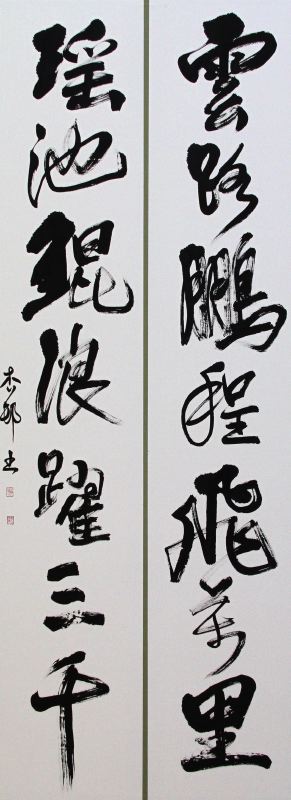 雲路鵬程飛万里
瑶池鯤浪躍三千